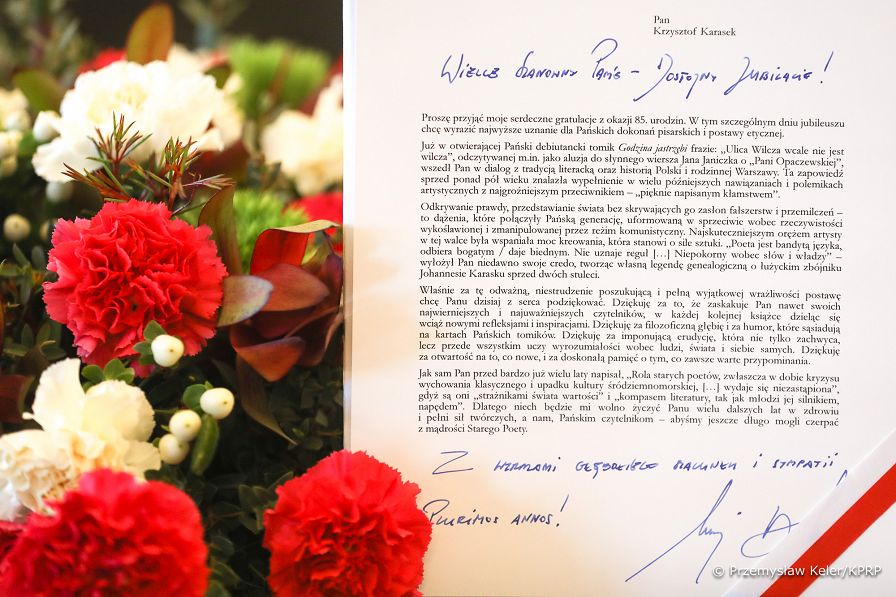 Pan
Krzysztof Karasek
Wielce Szanowny Panie – Dostojny Jubilacie!
Proszę przyjąć moje serdeczne gratulacje z okazji 85. urodzin. W tym szczególnym dniu jubileuszu
chcę wyrazić najwyższe uznanie dla Pańskich dokonań pisarskich i postawy etycznej.
Już w otwierającej Pański debiutancki tomik Godzina jastrzębi frazie: „Ulica Wilcza wcale nie jest
wilcza”, odczytywanej m.in. jako aluzja do słynnego wiersza Jana Janiczka o „Pani Opaczewskiej”,
wszedł Pan w dialog z tradycją literacką oraz historią Polski i rodzinnej Warszawy. Ta zapowiedź
sprzed ponad pół wieku znalazła wypełnienie w wielu późniejszych nawiązaniach i polemikach
artystycznych z najgroźniejszym przeciwnikiem – „pięknie napisanym kłamstwem”.
Odkrywanie prawdy, przedstawianie świata bez skrywających go zasłon fałszerstw i przemilczeń –
to dążenia, które połączyły Pańską generację, uformowaną w sprzeciwie wobec rzeczywistości
wykoślawionej i zmanipulowanej przez reżim komunistyczny. Najskuteczniejszym orężem artysty
w tej walce była wspaniała moc kreowania, która stanowi o sile sztuki. „Poeta jest bandytą języka,
odbiera bogatym / daje biednym. Nie uznaje reguł […] Niepokorny wobec słów i władzy” –
wyłożył Pan niedawno swoje credo, tworząc własną legendę genealogiczną o łużyckim zbójniku
Johannesie Karasku sprzed dwóch stuleci.
Właśnie za tę odważną, niestrudzenie poszukującą i pełną wyjątkowej wrażliwości postawę
chcę Panu dzisiaj z serca podziękować. Dziękuję za to, że zaskakuje Pan nawet swoich
najwierniejszych i najuważniejszych czytelników, w każdej kolejnej książce dzieląc się
wciąż nowymi refleksjami i inspiracjami. Dziękuję za filozoficzną głębię i za humor, które sąsiadują
na kartach Pańskich tomików. Dziękuję za imponującą erudycję, która nie tylko zachwyca,
lecz przede wszystkim uczy wyrozumiałości wobec ludzi, świata i siebie samych. Dziękuję
za otwartość na to, co nowe, i za doskonałą pamięć o tym, co zawsze warte przypomnienia.
Jak sam Pan przed bardzo już wielu laty napisał, „Rola starych poetów, zwłaszcza w dobie kryzysu
wychowania klasycznego i upadku kultury śródziemnomorskiej, […] wydaje się niezastąpiona”,
gdyż są oni „strażnikami świata wartości” i „kompasem literatury, tak jak młodzi jej silnikiem,
napędem”. Dlatego niech będzie mi wolno życzyć Panu wielu dalszych lat w zdrowiu
i pełni sił twórczych, a nam, Pańskim czytelnikom – abyśmy jeszcze długo mogli czerpać
z mądrości Starego Poety.
Z wyrazami głębokiego szacunku i sympatii
Plurimos annos!
© Przemysław Keler/KPRP